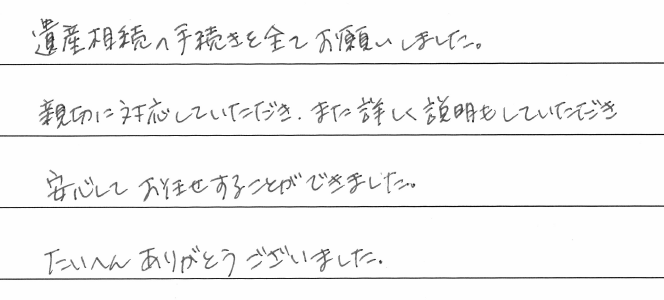 遺産相続の手続きを全てお願いしました。
親切に対応していただき、また詳しく説明もしていただき
安心してお任せすることができました。
たいへんありがとうございました。